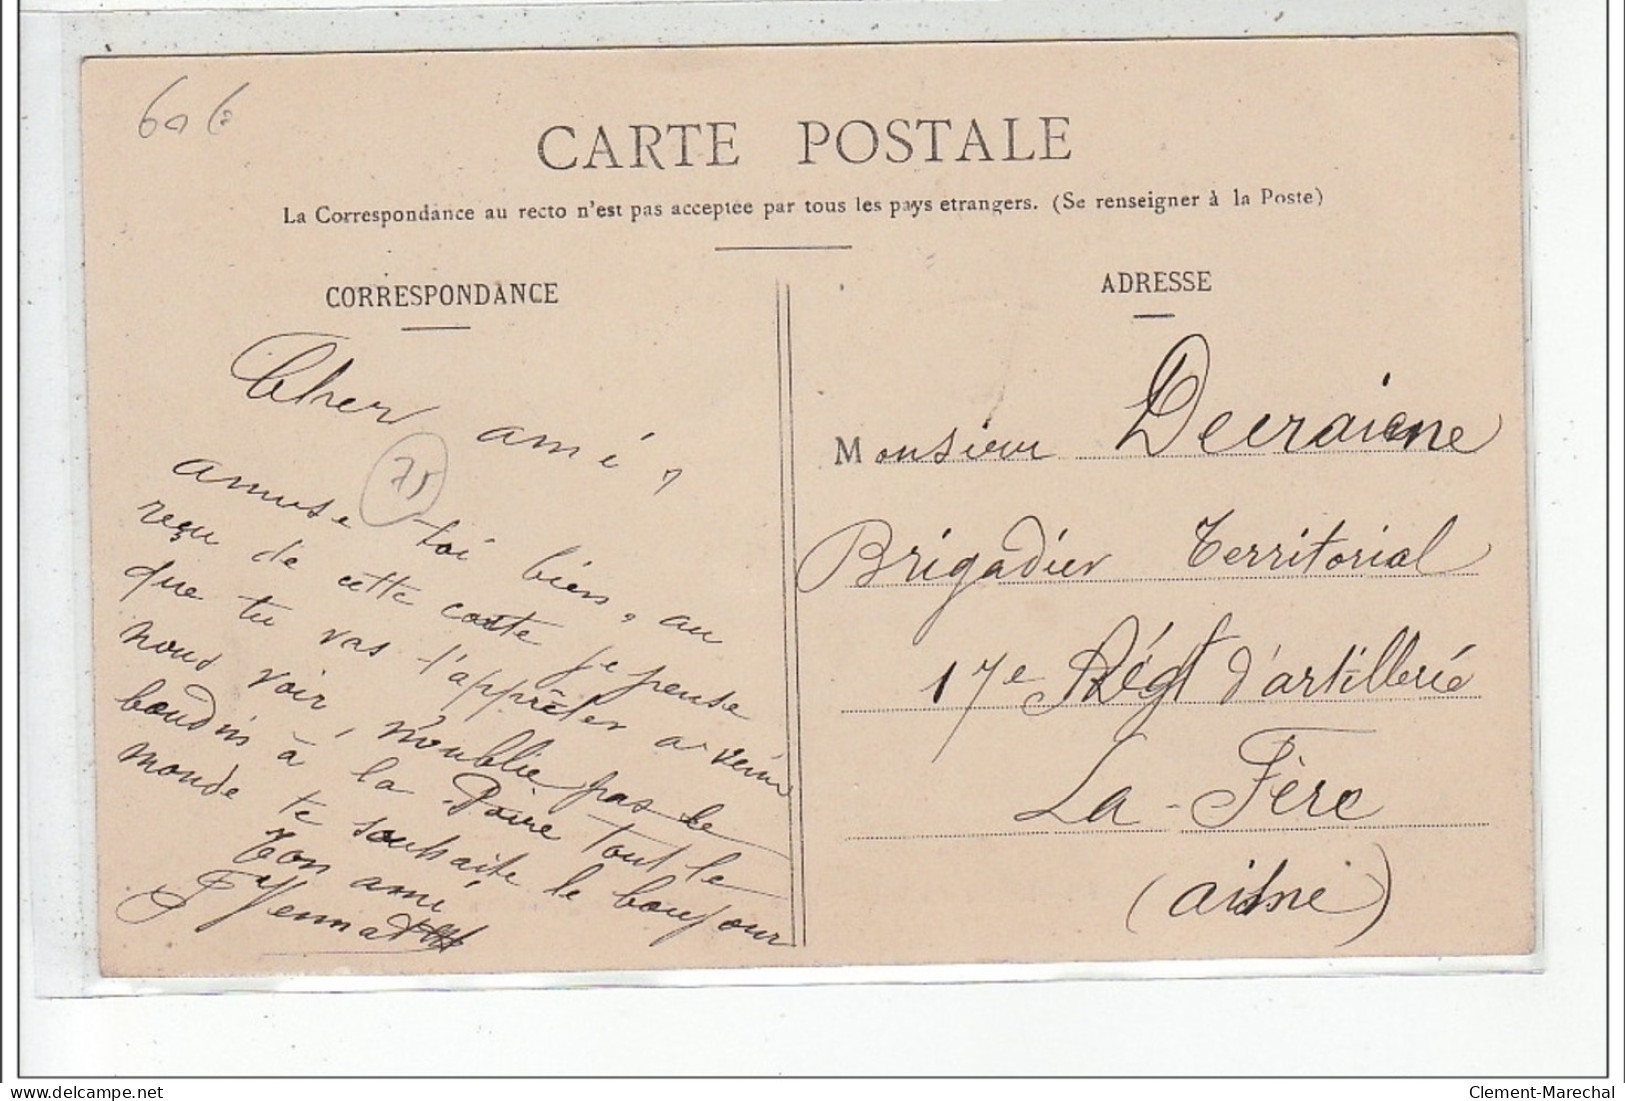 CARTE POSTALE
La Correspondance au recto n'est pas acceptée par tous les pays etrangers. (Se renseigner à la Poste)
CORRESPONDANCE
Cher ami,
75
amuse-toi bien, au
reçu de cette carte je pense
que tu vas t'apprêter a venir
nous voir, n'oublie pas le
boudin à la Poire tout le
monde te souhaite le bonjour
Ton ami
ADRESSE
Monsieur Decraiene
Brigadier Territorial
17e Régt d'artillerie
La-Fère
(aisne)
delcampe.net
Clement-Marechal